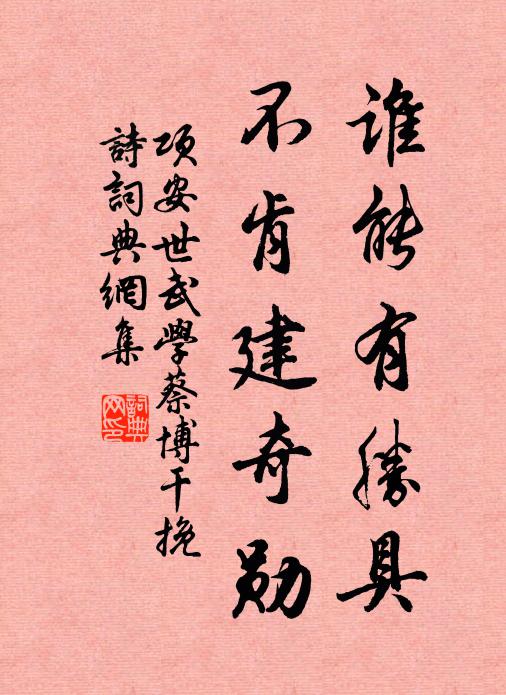 誰能有勝具
不肯建奇勛
項安世武學蔡博干挽
詩詞典網集
詞典网印